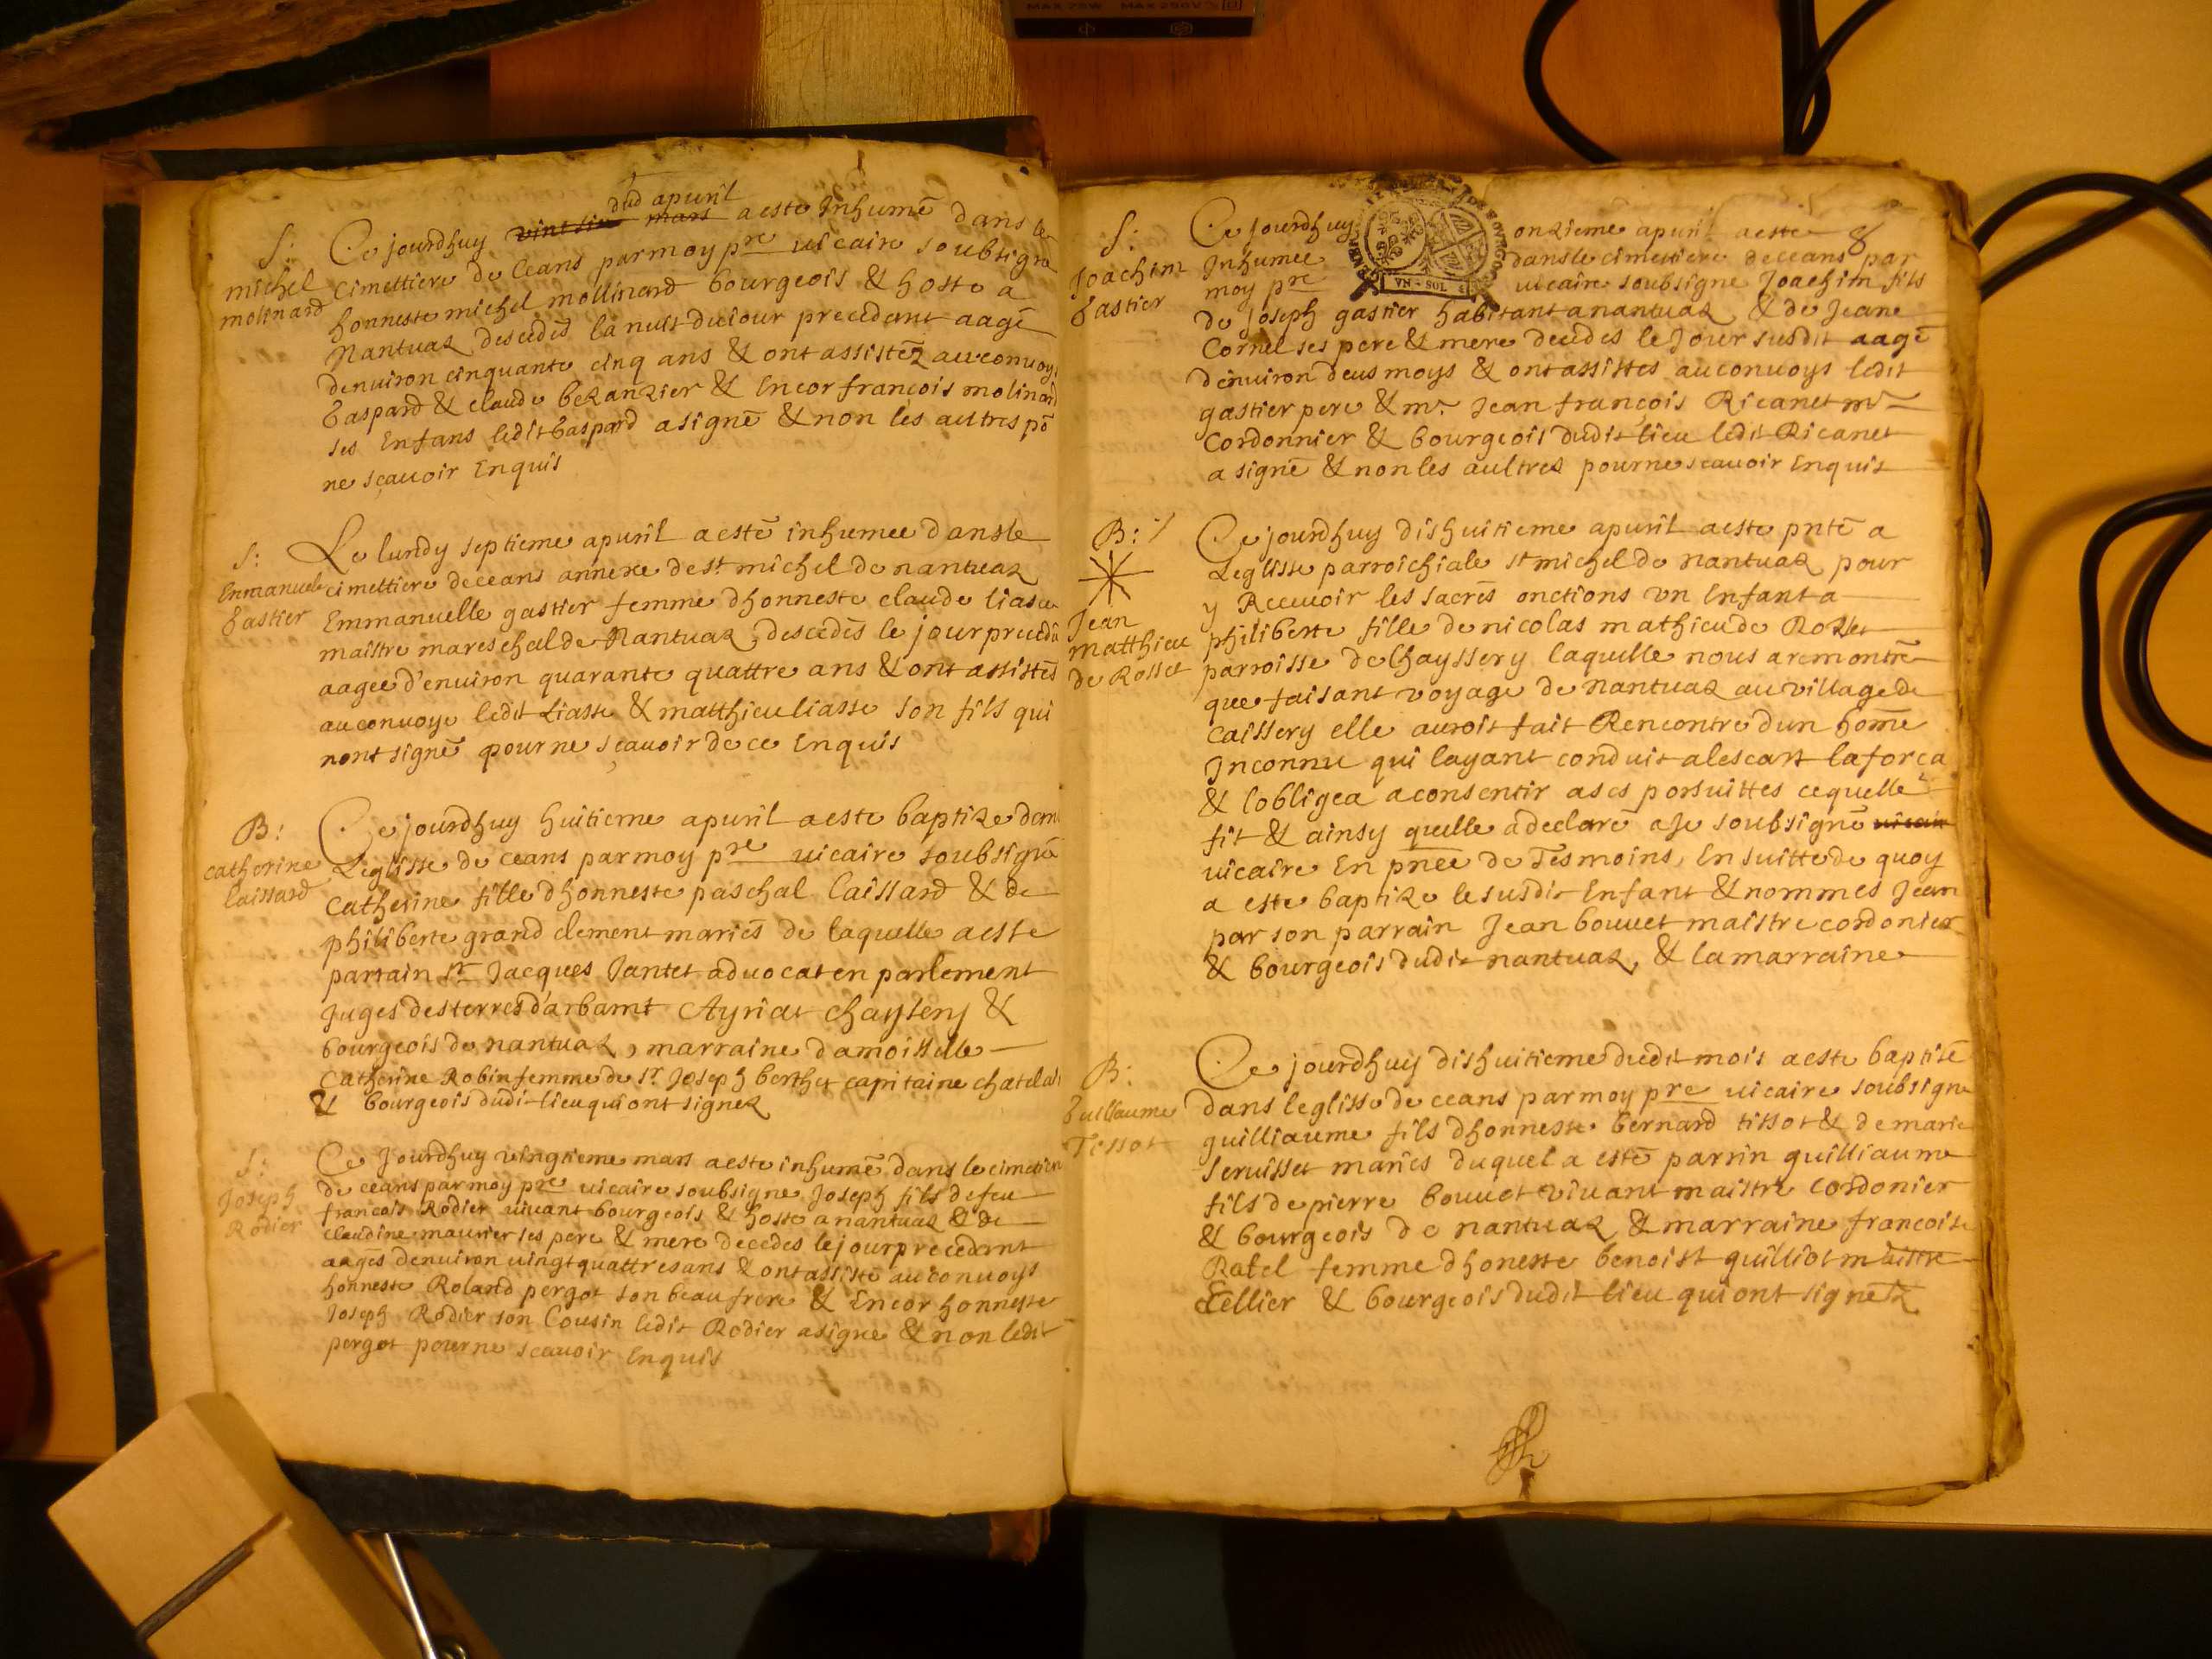 dud apuril
S: Ce jourdhuy vint six mars a este Inhumé dans le
michel cimettiere de ceans par moy pre vicaire soubsigné
molinard honneste michel mollinard bourgeois & hoste a
Nantuaz descedes la nuit du iour precedant aagé
denuiron cinquante cinq ans & ont assistéz au conuoy
Gaspard & claude bezanzier & Encor françois molinard
ses Enfans ledit Gaspard a signé & non les autres po
ne sçauoir Enquis
S: Le lundy septieme apuril a esté inhumee dans le
Emmanuele cimettiere de ceans annexe de st michel de nantuaz
Gastier Emmanuelle gastier femme dhonneste claude liasse
maistre mareschal de Nantuaz descedés le jour preceda
aagee d'enuiron quarante quattre ans & ont assistés
au conuoye ledit Liasse & matthieu liasse son fils qui
nont signé pour ne sçauoir de ce Enquis
B: Ce jourdhuy huitieme apuril a este baptize dans
catherine Leglisse de ceans par moy pre uicaire soubsigné
laissard Catherine fille dhonneste paschal laissard & de
philiberte grand clement mariés de laquelle a este
parrain sr Jacques Jantet aduocat en parlement
Juges des terres d'arbamt Ayriat chaysery &
bourgeois de nantuaz, marraine damoiselle
Catherine Robin femme de sr Joseph berthet capitaine chatelai
& bourgeois dudit lieu qui ont signez
S: Ce Jourdhuy vingtieme mars a este inhumé dans le cimetiere
Joseph de ceans par moy pre uicaire soubsigne Joseph fils de feu
Rodier francois Rodier uiuant bourgeois & hoste a nantuaz & de
claudine maurier ses pere & mere decedes le jour precedant
aagés denuiron uingt quattres ans & ont assisté au conuoys
honneste Roland pergot son beau frere & Encor honneste
Joseph Rodier son Cousin ledit Rodier a signe & non ledit
pergot pour ne sceauoir Enquis
S: Ce jourdhuy onzieme apuril a este
Joachim Inhumee dans le cimettiere de ceans par
Gastier moy pre uicaire soubsigne Joachim fils
de Joseph gastier habitant a nantuaz & de Jeane
Cornil ses pere & mere decedes le Jour susdit aagé
denuiron deus moys & ont assistes au conuoys ledit
gastier pere & mr. Jean françois Ricanet mr
Cordonnier & bourgeois dudit lieu ledit Ricanet
a signé & non les aultrez pour ne scauoir Enquis
B: Ce jourdhuy dishuitieme apuril a este pnté a
Leglisse parroichiale st michel de nantuaz pour
y Receuoir les sacrés onctions vn Enfant a
Jean philiberte fille de nicolas mathieu de Rosset
matthieu parroisse de Chayssery laquelle nous a remontré
de Rosset que faisant voyage de nantuaz au village de
Caissery elle auroit fait Rencontre dun homé
Inconnu qui layant conduit a lescart la força
& lobligea a consentir a ses porsuittes ce quelle
fit & ainsy quelle a declaré a Je soubsigné uicair
uicaire En pnée de Tesmoins, En suitte de quoy
a este baptize le susdit Enfant & nommés Jean
par son parrain Jean bouuet maistre cordonier
& bourgeois dudit nantuaz, & la marraine
B: Ce jourdhuy dishuitieme dudit mois a este baptisé
Guillaume dans leglisse de ceans par moy pre uicaire soubsigne
Tissot guilliaume fils dhonneste bernard tissot & de marie
Seruisset mariés duquel a esté parrin guilliaume
fils de pierre bouuet viuant maistre cordonier
& bourgeois de nantuaz & marraine francoise
Ratel femme dhoneste benoist guilliot maittre
sellier & bourgeois dudit lieu qui ont signetz